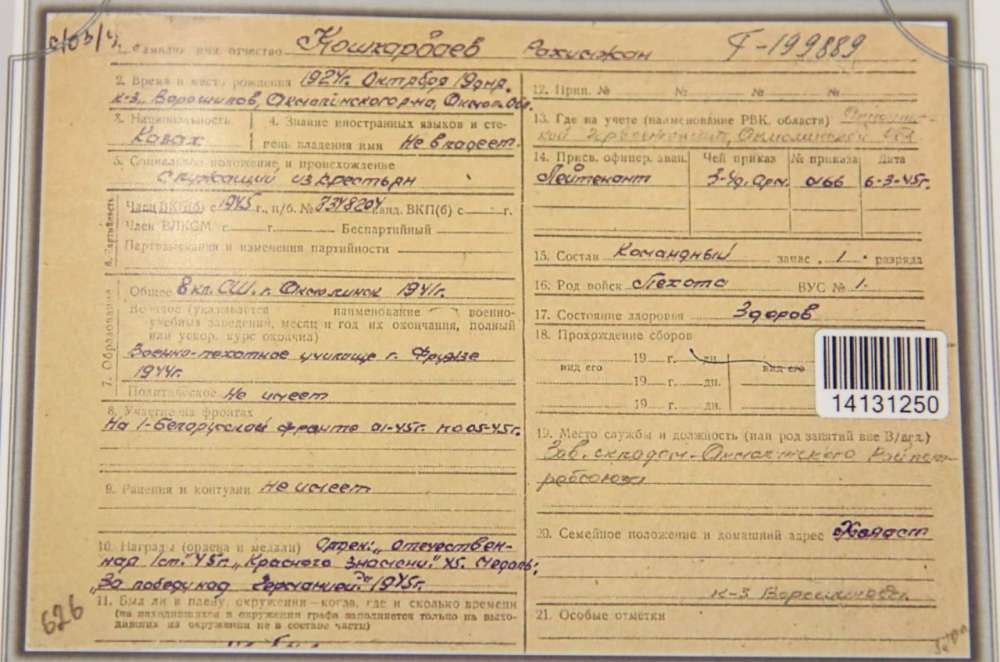 1. Фамилия имя отчество Кошкарбаев Рахимжан Г-199889
2. Время и место рождения 1924г. Октября 19дня.
к-з „Ворошилов, Акмолинского р-на, Акмол. обл.
3. Национальность Казах
4. Знание иностранных языков и сте-
пень владения ими Не владеет.
5. Социальное положение и происхождение
Служащий из крестьян
6. Партийность
Член ВКП(б) с 1945 г., п/б. № канд. ВКП(б) с г.
Член ВЛКСМ г. г. Беспартийный
Партвзыскания и изменения партийности
7. Образование
Общее 8 кл. СШ. г. Акмолинск 1941г.
Военное (указывается наименование военно-
учебных заведений, месяц и год их окончания, полный
или ускор. курс окончил)
Военно-пехотное училище г. Фрунзе
1944г.
Политическое Не имеет
8. Участие на фронтах
На 1-Белорусском фронте 01-45г. по 05-45г.
9. Ранения и контузии Не имеет
10. Награды (ордена и медали) Орден: „Отечествен-
ная 1ст." 45г. „Красного Знамени." 45. Медаль:
„За победу над Германией" 1945г.
11. Был ли в плену, окружении—когда, где и сколько времени
(на находившихся в окружении графа заполняется только на выхо-
дивших из окружения не в составе части)
626
12. Прип. № № № №
13. Где на учете (наименование РВК, области)
14. Присв. офицер. зван. Чей приказ № приказа Дата
Лейтенант 3-Уд. Арм. 0166 6-3-45г.
15. Состав Командный запас 1 разряда
16. Род войск Пехота ВУС № 1
17. Состояние здоровья Здоров
18. Прохождение сборов
19 г. дн.
вид его вид его
19 г. дн.
19 г. дн.
14131250
19. Место службы и должность (или род занятий вне В/вед.)
Зав. складом Райпот-
ребсоюза
20. Семейное положение и домашний адрес Холост
к-з Ворошилова
21. Особые отметки